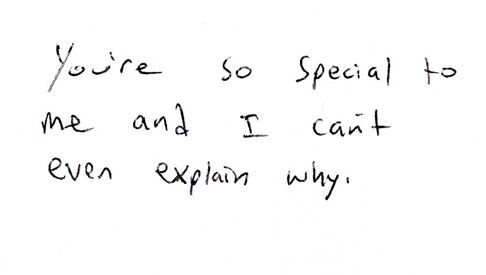 You're so special to
me and I can't
even explain why.